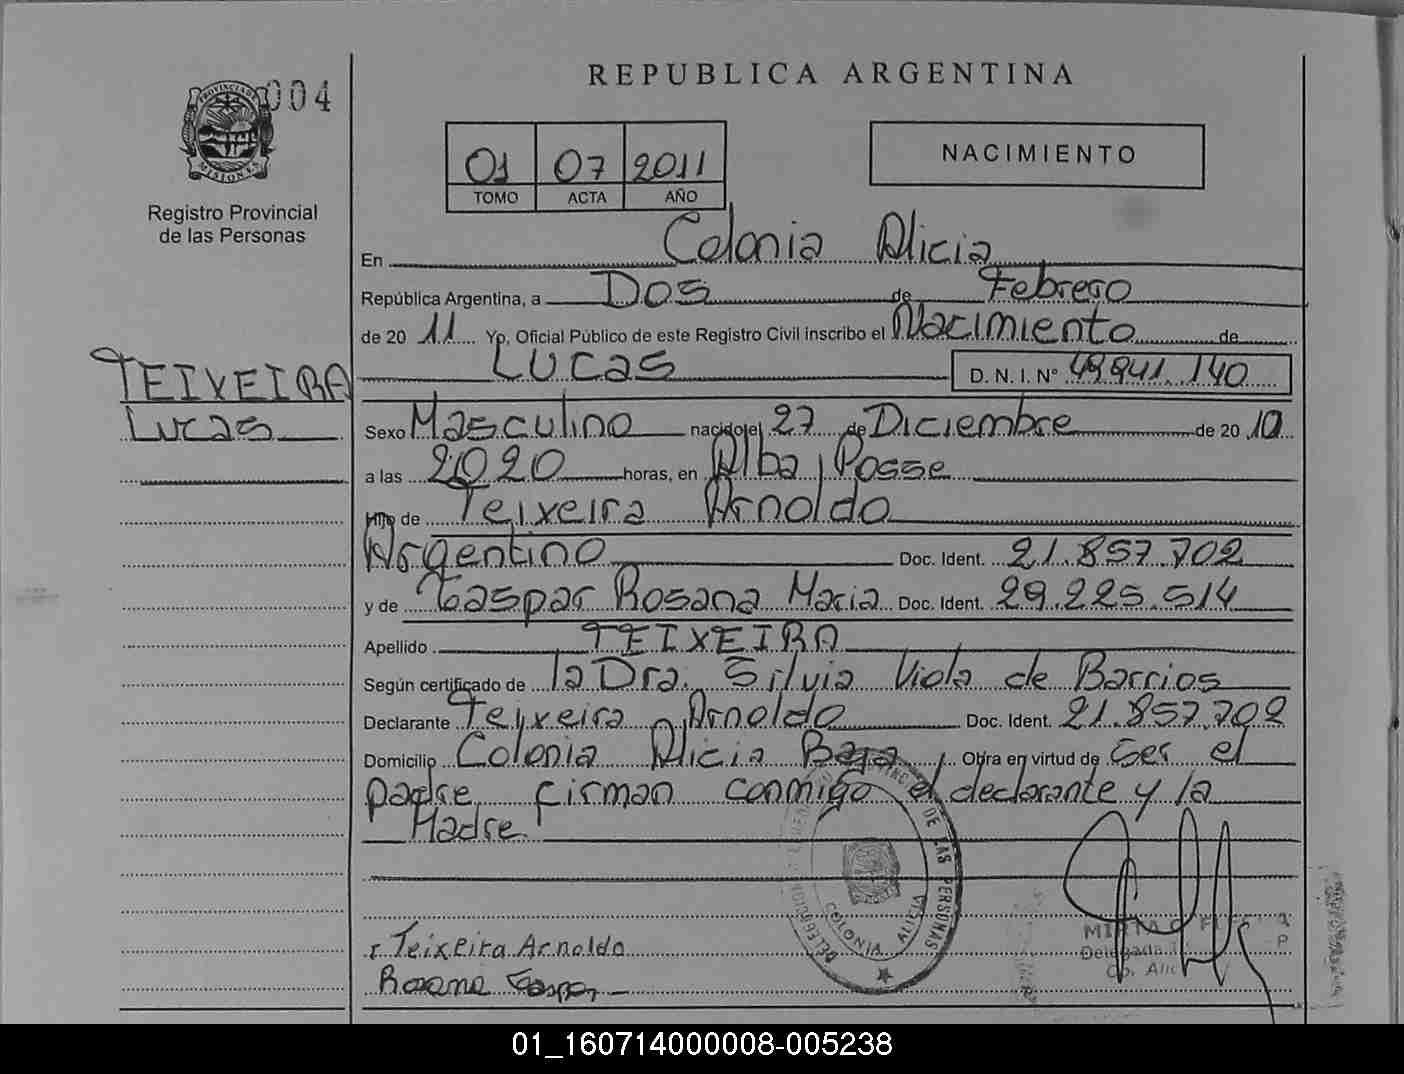 004
PROVINCIA DE
MISIONES
Registro Provincial
de las Personas
TEIXEIRA
Lucas
REPUBLICA ARGENTINA
01 07 2011
TOMO ACTA AÑO
NACIMIENTO
En Colonia Alicia
República Argentina, a Dos de Febrero
de 20 11 Yo, Oficial Público de este Registro Civil inscribo el Nacimiento de
Lucas D. N. I. N°
Sexo Masculino nacido el 27 de Diciembre de 20 10
a las 2020 horas, en Alba Posse
Hijo de Teixeira Arnoldo
Argentino Doc. Ident. 21.857.702
y de Gaspar Rosana Maria Doc. Ident. 29.225.514
Apellido TEIXEIRA
Según certificado de la Dra. Silvia Viola de Barrios
Declarante Teixeira Arnoldo Doc. Ident. 21.857.702
Domicilio Colonia Alicia Baja Obra en virtud de ser el
padre firman conmigo el declarante y la
Madre
DE LAS PERSONAS
COLONIA ALICIA
Teixeira Arnoldo
Rosana Gaspar
Delegada
Co. Alic
01_160714000008-005238